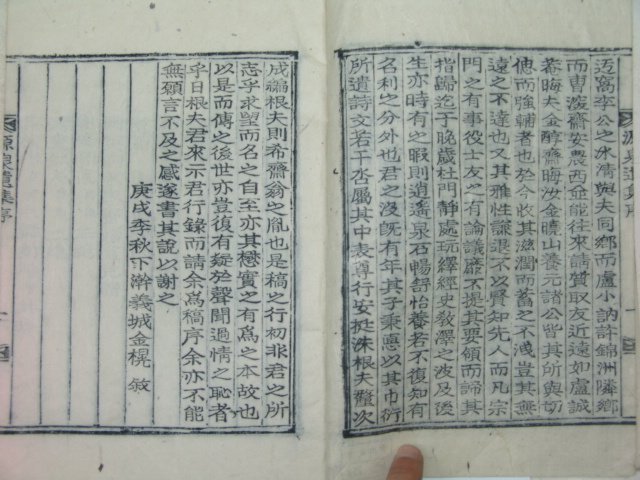 迃窩李公之氷清與夫同鄉而盧小訥許錦洲隣鄉
而曺深齋安農西並能往來請贊取友近遠如盧誠
菴晦夫金醇齋晦汝金曉山養元諸公皆其所與切
偲而強輔者也於今收其滋潤而蓄之不淺豈其無
遠之不達也又其雅性謙退不以賢知先人而凡宗
門之有事役士友之有論議靡不提其要領而諦其
指歸迄于晚歲杜門靜處玩繹經史教澤之波及後
生亦時有之暇則逍遙泉石暢舒怡養若不復知有
名利之分外也君之沒旣有年其子秉悳以其巾衍
所遺詩文若干呇屬其中表尊行安挺洙根夫纜次
成編根夫則希齋翁之胤也是稿之行初非君之所
志乎求望而名之自至亦其懋實之有爲之本故也
以是而傳之後世亦豈復有綻於聲聞過情之恥者
乎日根夫君來示君行錄而請余爲稿序余亦不能
無願言不及之感遂書其說以謝之
庚戌季秋下澣義城金榥敘
源泉遺集序